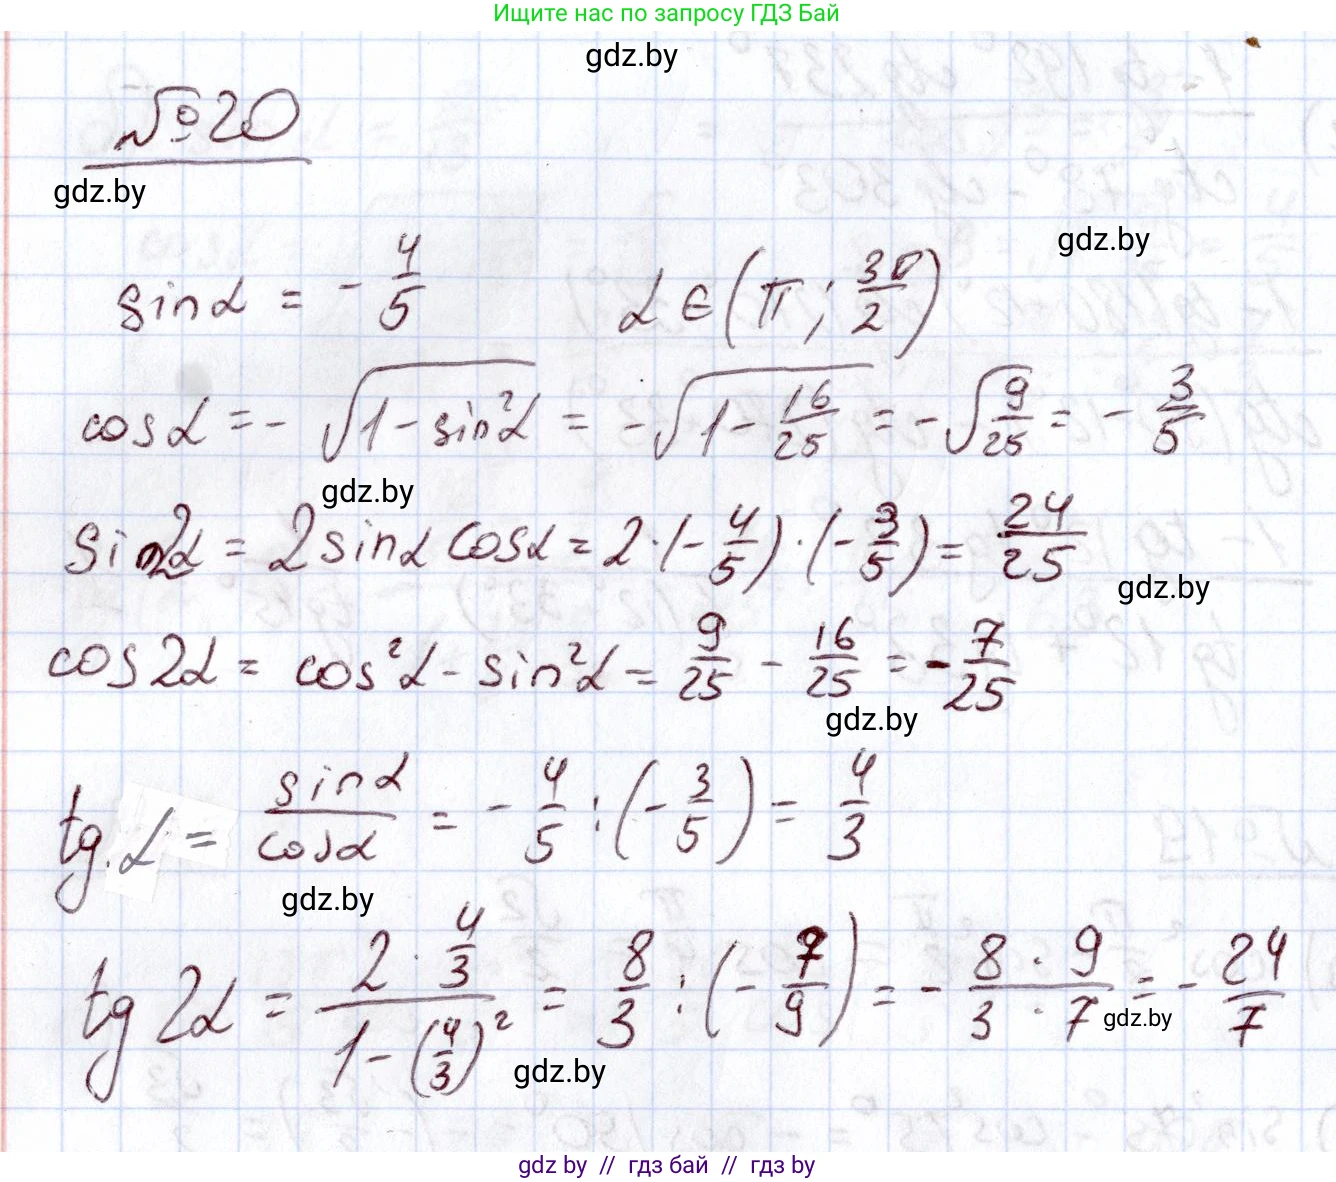 Ищите нас по запросу ГДЗ Бай
gdz.by
№20
gdz.by
gdz.by
sinα = -4/5   α ∈ (π; 3π/2)
cosα = -√(1 - sin²α) = -√(1 - 16/25) = -√(9/25) = -3/5
gdz.by
sin2α = 2sinα cosα = 2·(-4/5)·(-3/5) = 24/25
gdz.by
cos2α = cos²α - sin²α = 9/25 - 16/25 = -7/25
gdz.by
tg.α = sinα/cosα = -4/5 : (-3/5) = 4/3
gdz.by
tg2α = (2·4/3)/(1-(4/3)²) = 8/3 : (-7/9) = -(8·9)/(3·7) = -24/7
gdz.by
gdz.by
gdz.by // гдз бай // гдз by